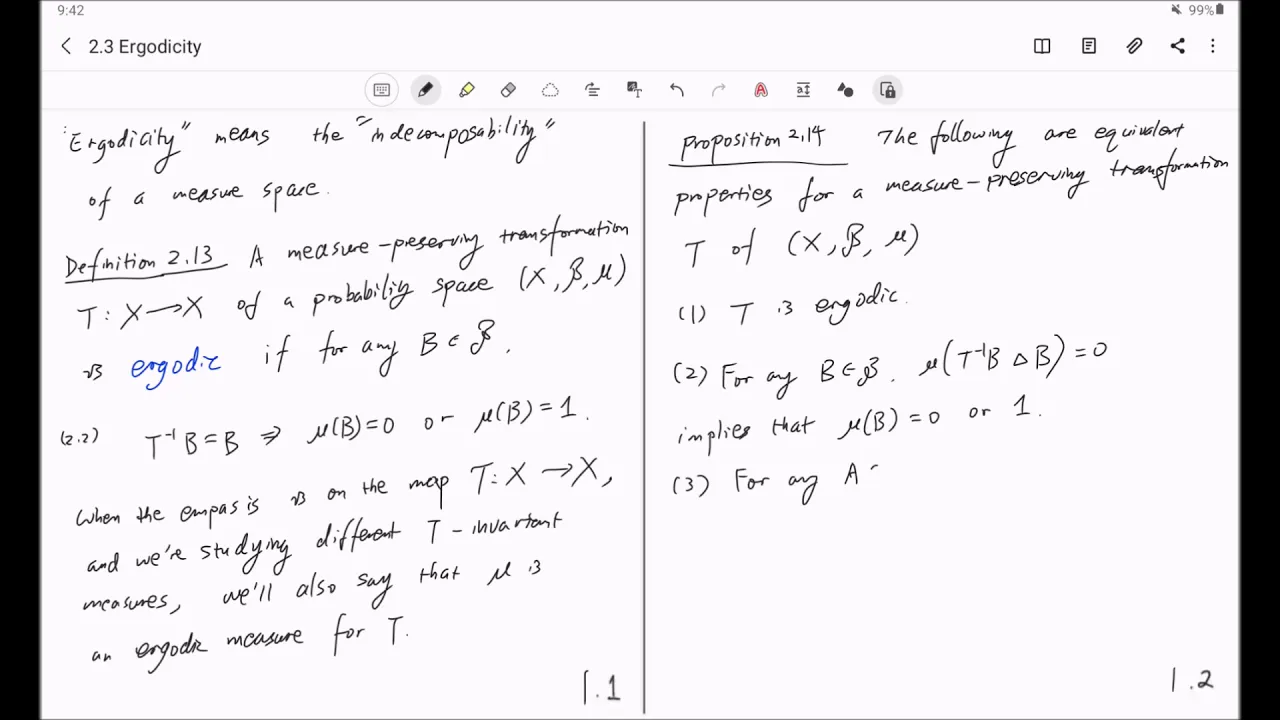 9:42
99%
2.3 Ergodicity
"Ergodicity" means the "indecomposability"
of a measure space.
Definition 2.13 A measure-preserving transformation
T: X → X of a probability space (X, ℬ, μ)
is ergodic if for any B ∈ ℬ,
(2.2) T⁻¹B = B ⇒ μ(B)=0 or μ(B)=1.
When the empasis is on the map T: X → X,
and we're studying different T-invariant
measures, we'll also say that μ is
an ergodic measure for T.
1.1
Proposition 2.14 The following are equivalent
properties for a measure-preserving transformation
T of (X, ℬ, μ)
(1) T is ergodic.
(2) For any B ∈ ℬ, μ(T⁻¹B △ B) = 0
implies that μ(B) = 0 or 1.
(3) For any A
1.2